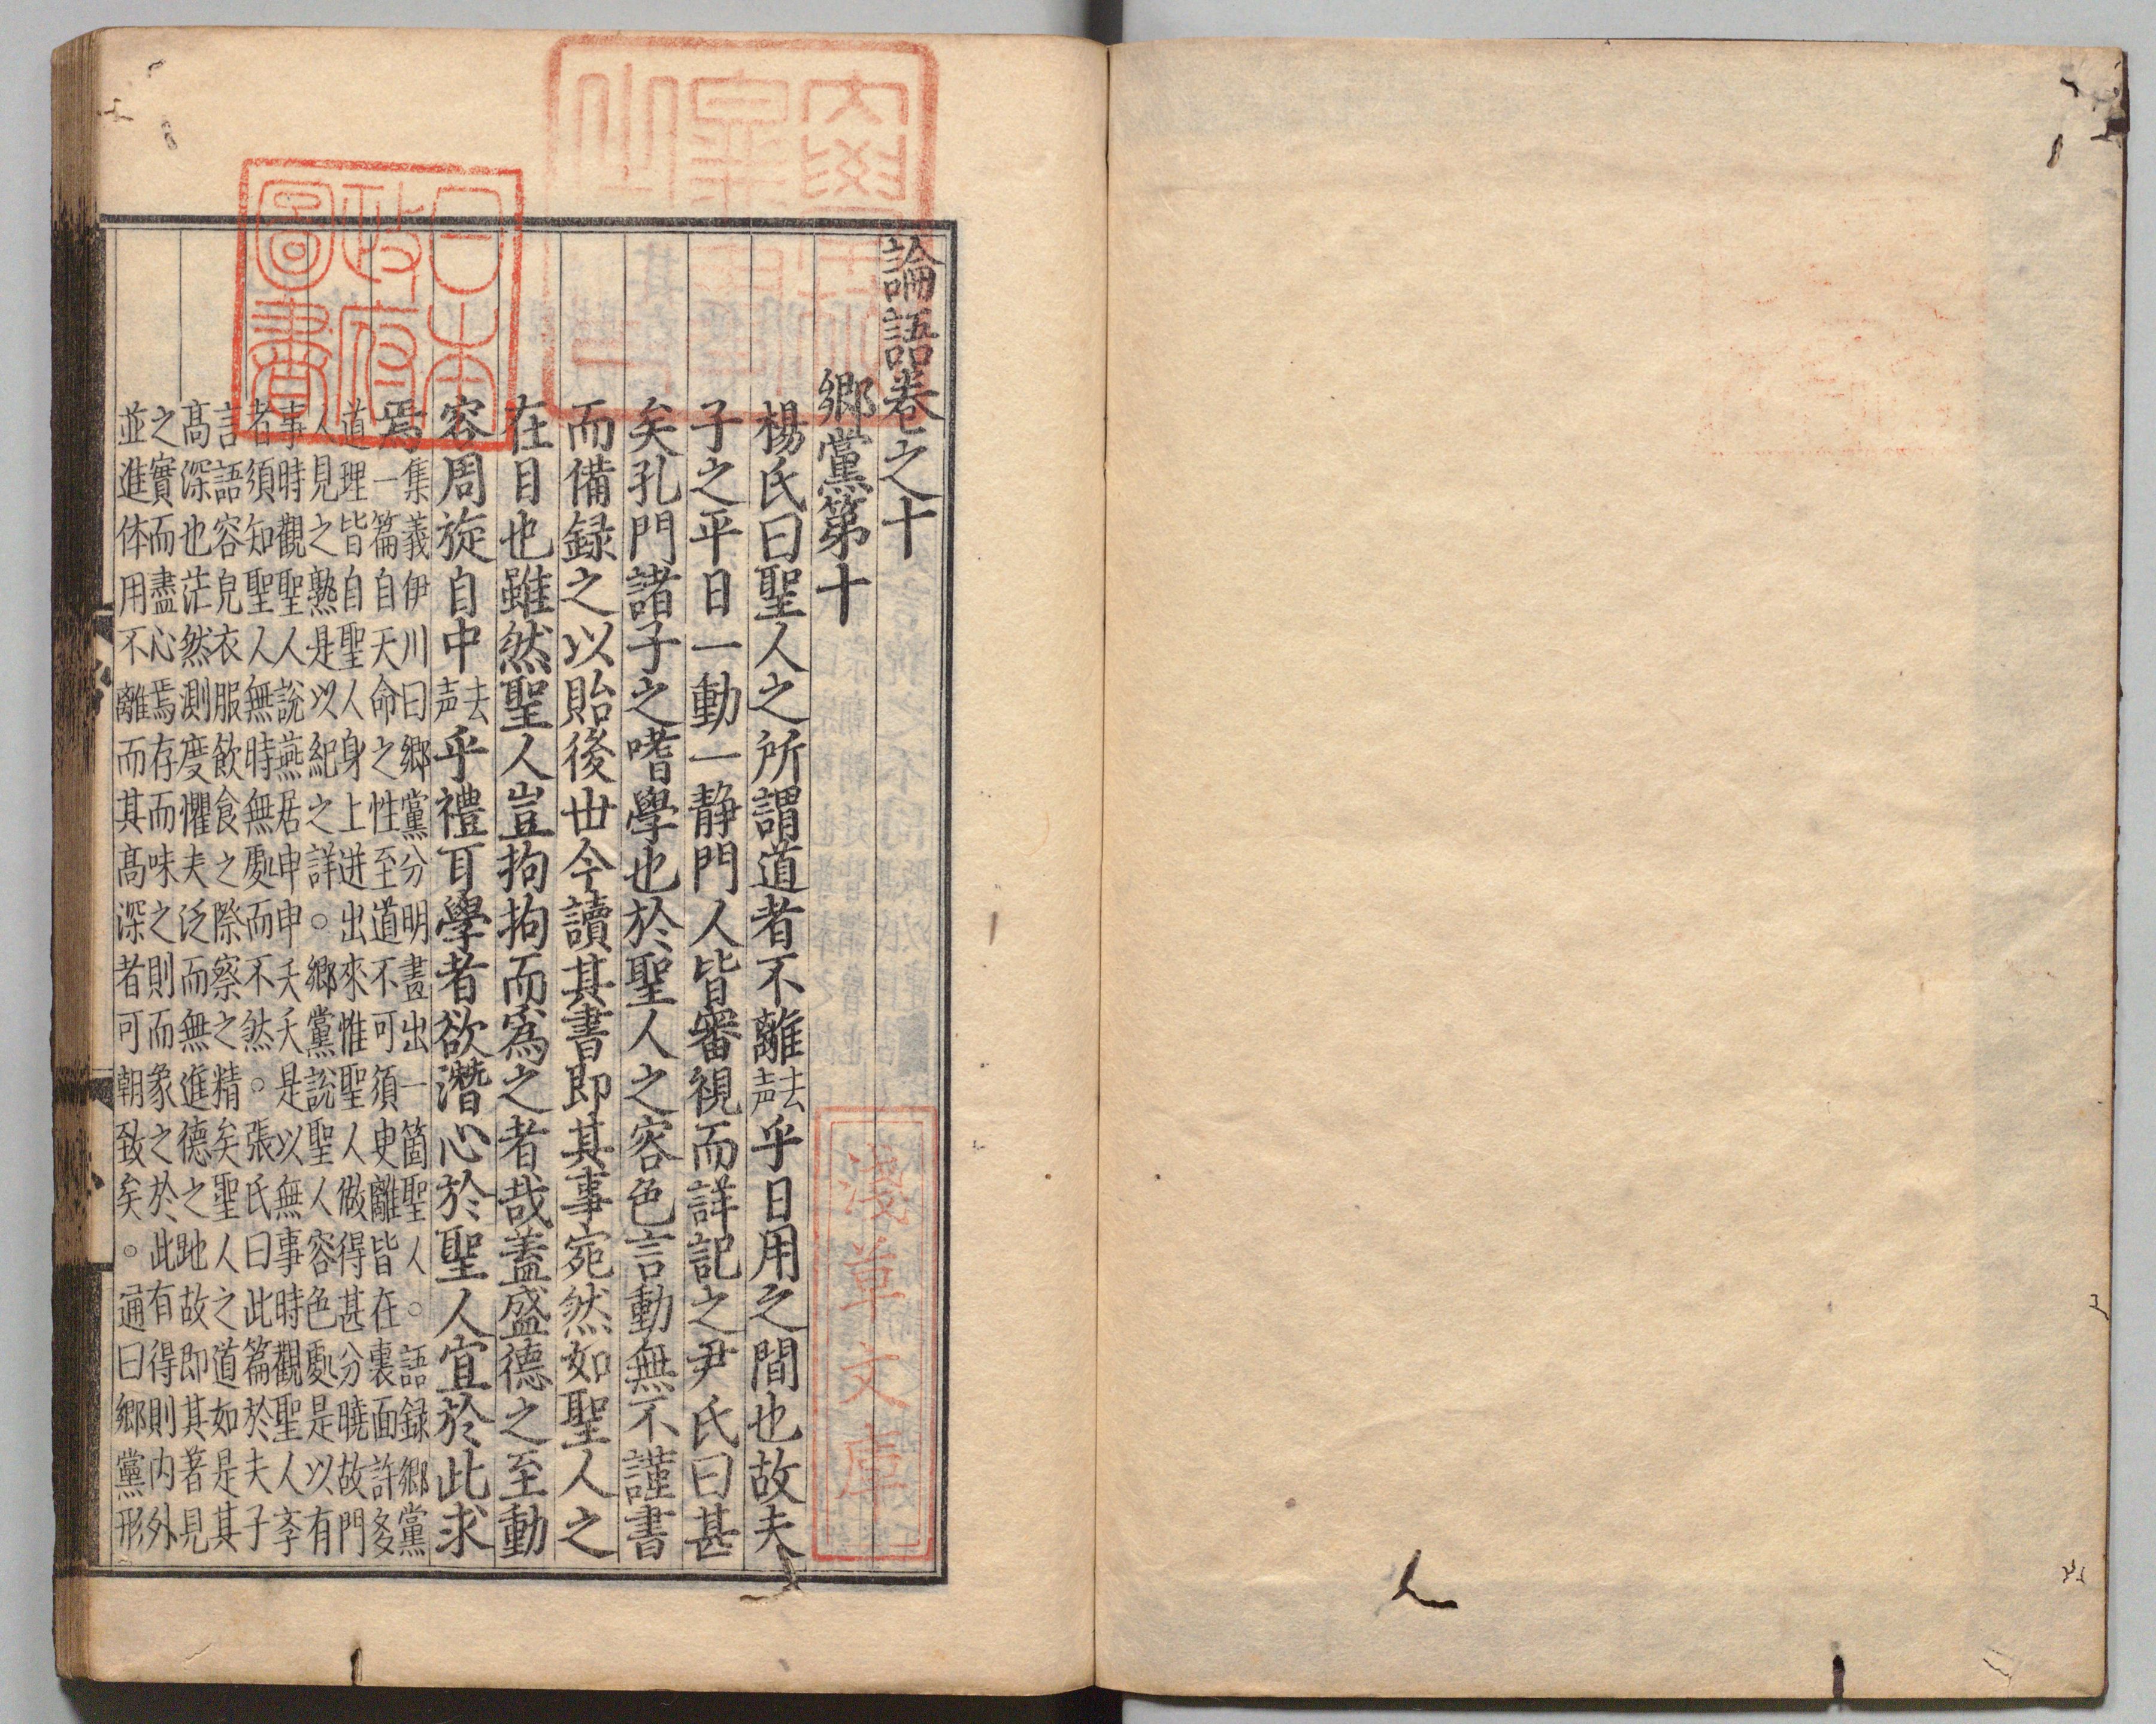 論語卷之十
郷黨第十
楊氏曰聖人之所謂道者不離去声乎日用之間也故夫
子之平日一動一静門人皆審視而詳記之尹氏曰甚
矣孔門諸子之嗜學也於聖人之容色言動無不謹書
而備録之以貽後世今讀其書即其事宛然如聖人之
在目也雖然聖人豈拘拘而為之者哉蓋盛德之至動
容周旋自中去声乎禮耳學者欲潛心於聖人宜於此求
焉
集義伊川曰郷黨分明畫出一箇聖人。語録郷黨
一篇自天命之性至道不可須臾離皆在裏面許多
道理皆自聖人身上迸出來惟聖人做得甚分曉故門
人見之熟是以紀之詳。郷黨說聖人容色處是以有
事時觀聖人說燕居申申夭夭是以無事時觀聖人斈
者須知聖人無時無處而不然。張氏曰此篇於夫子
言語容皃衣服飲食之際察之精矣聖人之道如是其
高深也茫然測度懼夫泛而無進德之地故即其著見
之實而盡心焉存而味之則而象之於此有得則内外
並進体用不離而其高深者可朝致矣。通曰郷黨形
日本
政府
圖書
淺草文庫